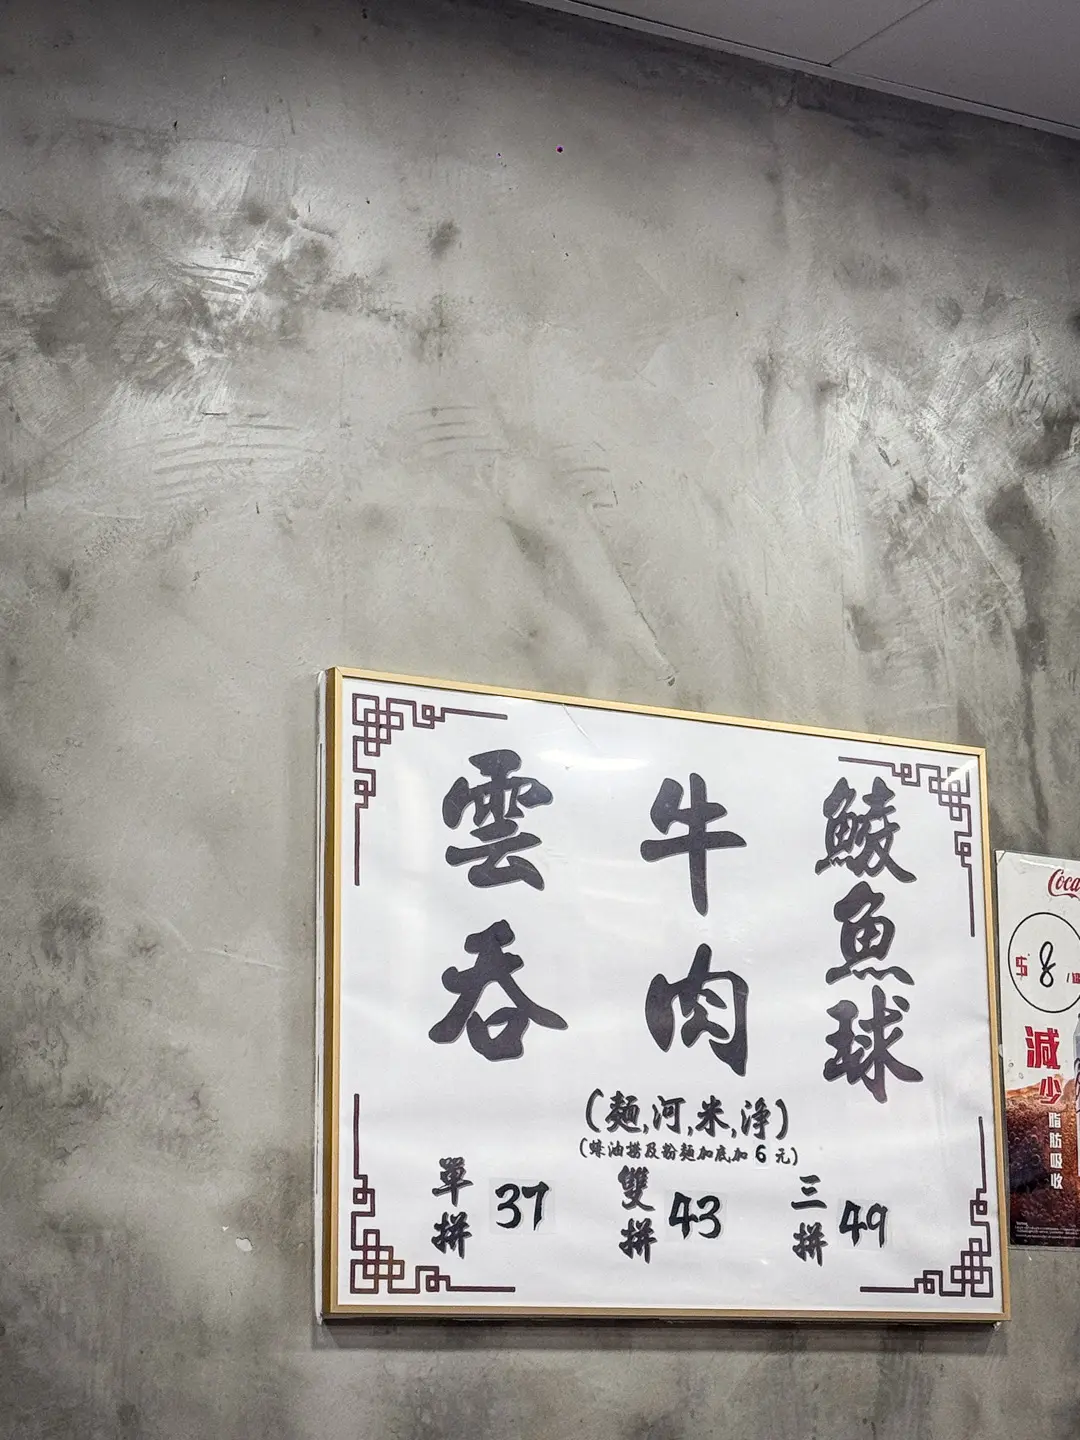 雲吞
牛肉
鱗魚球
(麵,河,米,淨)
(蠔油撈及粉麵加底加6元)
單拼 37
雙拼 43
三拼 49
Coca
$8
減少
脂肪吸收